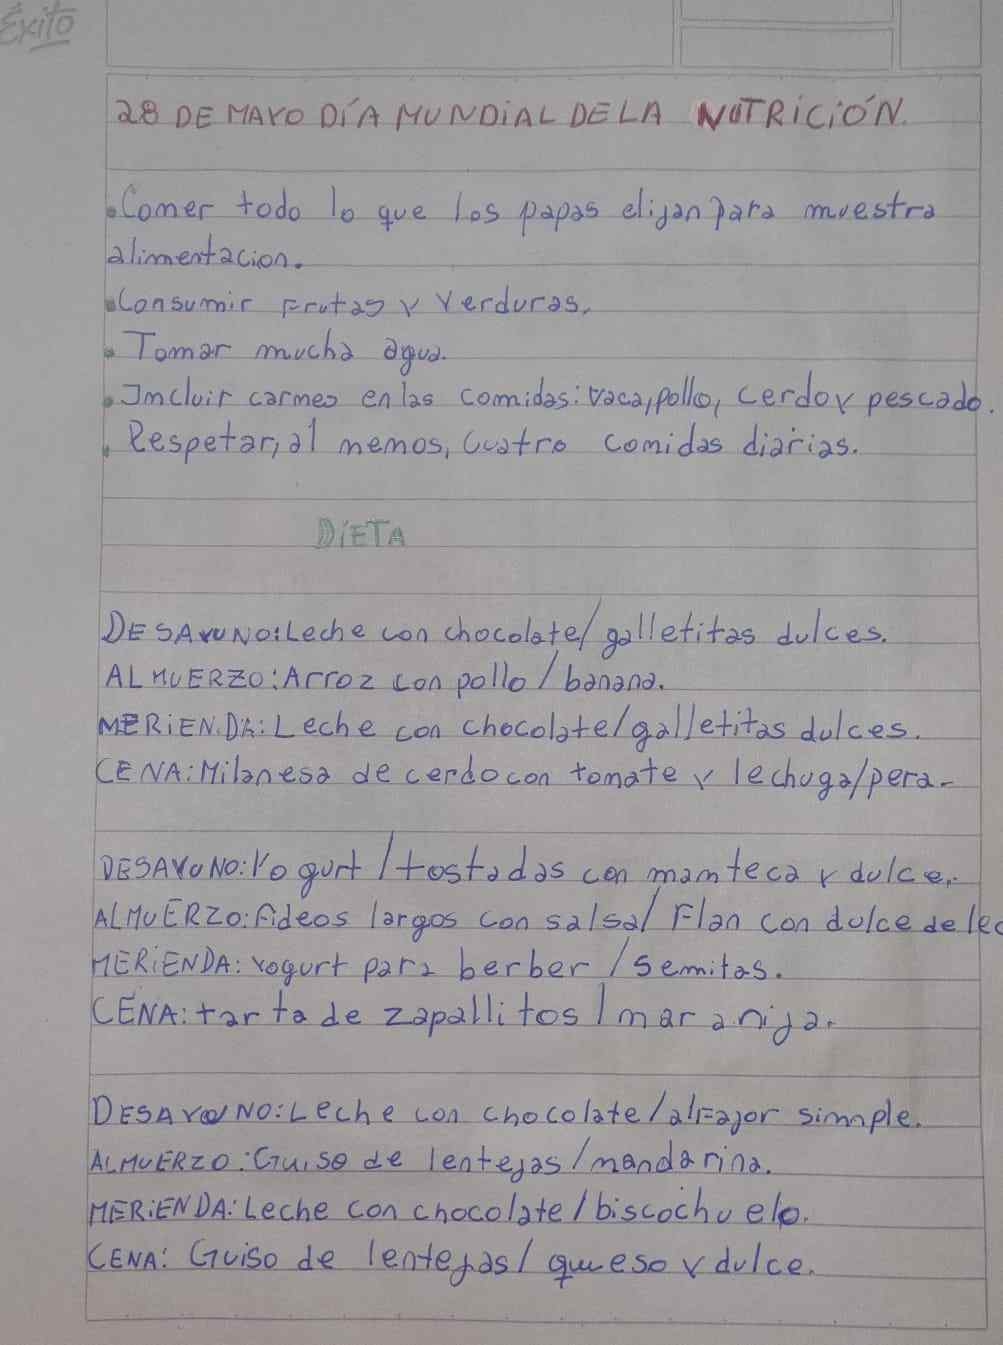 Éxito
28 DE MAYO DÍA MUNDiAL DE LA NUTRiCiÓN.
• Comer todo lo que los papas elijan para muestra
alimentacion.
• Consumir Frutas y Verduras.
• Tomar mucha agua.
• Imcluir carmes en las comidas: vaca, pollo, cerdo y pescado.
• Respetar, al memos, Cuatro comidas diarias.
DiETA
DESAYUNO: Leche con chocolate/ galletitas dulces.
ALMUERZO: Arroz con pollo / banana.
MERiENDA: Leche con chocolate/galletitas dulces.
CENA: Milanesa de cerdo con tomate y lechuga/pera-
DESAYUNO: Yogurt / tostadas con mamteca y dulce.
ALMUERZO: Fideos largos con salsa/ Flan con dulce de lec
MERiENDA: Yogurt para berber / Semitas.
CENA: tarta de zapallitos / maranija.
DESAYUNO: Leche con chocolate/alFajor simple.
ALMUERZO: Guiso de lentejas/mandarina.
MERiENDA: Leche con chocolate/biscochuelo.
CENA: Guiso de lentejas/ queso y dulce.